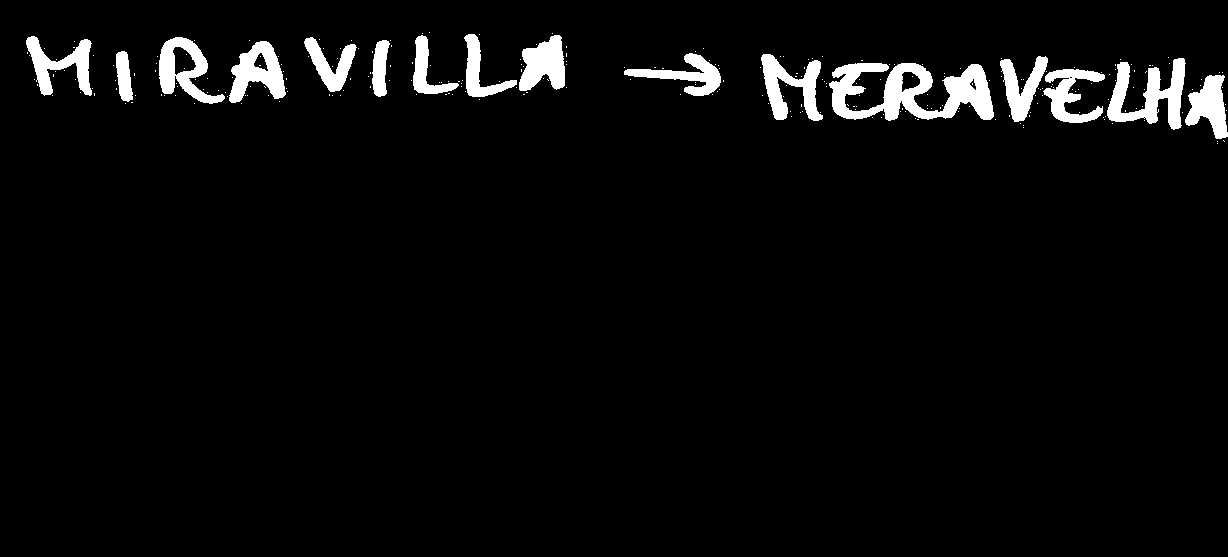 MIRAVILLA → MERAVELHA